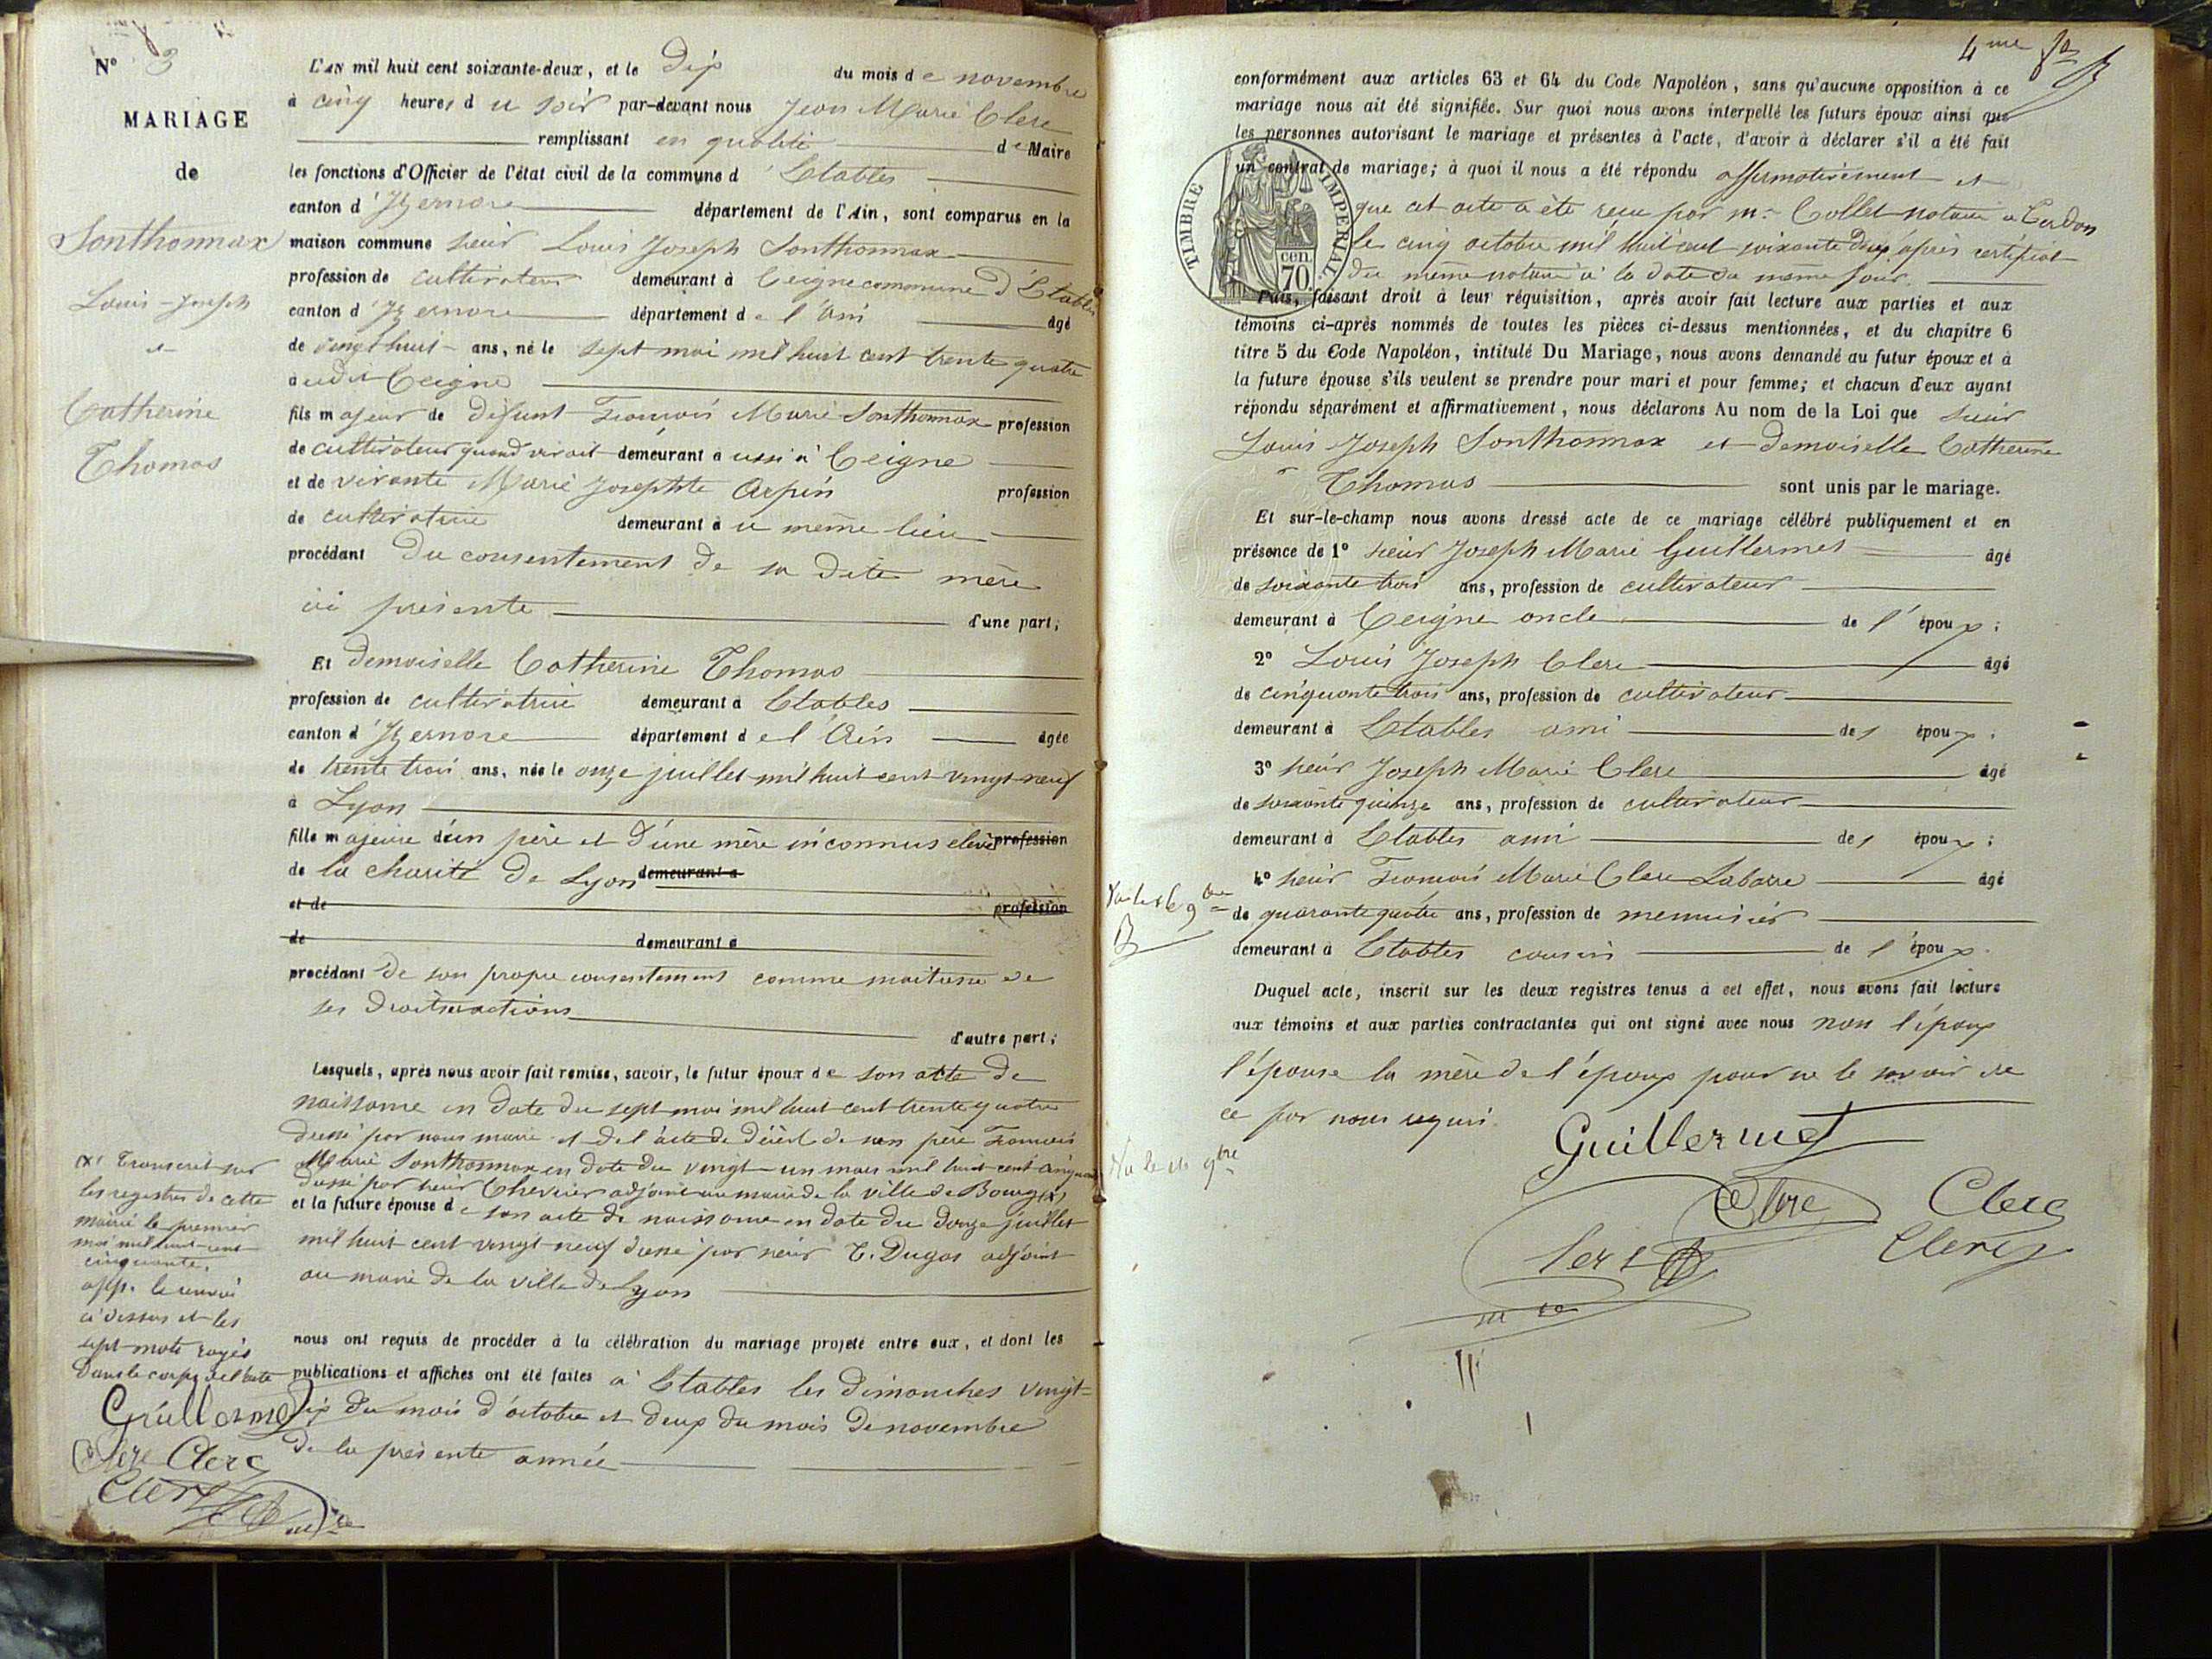 N° 3
MARIAGE
de
Sonthonnax
Louis-Joseph
et
Catherine
Thomas
L'AN mil huit cent soixante-deux, et le Dix du mois de novembre
à cinq heures du soir par-devant nous Jean Marie Clerc
remplissant en qualité de Maire
les fonctions d'Officier de l'état civil de la commune d'Etables
canton d'Izernore département de l'Ain, sont comparus en la
maison commune sieur Louis Joseph Sonthonnax
profession de cultivateur demeurant à Ceigne commune d'Etables
canton d'Izernore département de l'Ain âgé
de vingt huit ans, né le sept mai mil huit cent trente quatre
audit Ceigne
fils majeur de défunt François Marie Sonthonnax profession
de cultivateur quand vivait demeurant aussi à Ceigne
et de vivante Marie Josephte Arpin profession
de cultivatrice demeurant au même lieu
procédant du consentement de sa dite mère
ici présente d'une part;
Et demoiselle Catherine Thomas
profession de cultivatrice demeurant à Etables
canton d'Izernore département de l'Ain âgée
de trente trois ans, née le onze juillet mil huit cent vingt neuf
à Lyon
fille majeure d'un père et d'une mère inconnus elevé profession
de la charité de Lyon demeurant à
et de profession
de demeurant à
procédant de son propre consentement comme maitresse de
ses droits et actions
d'autre part;
Lesquels, après nous avoir fait remise, savoir, le futur époux de son acte de
naissance en date du sept mai mil huit cent trente quatre
dressé par nous maire et de l'acte de décès de son père François
Marie Sonthonnax en date du vingt-un mars mil huit cent cinquante
dressé par sieur Chevrier adjoint au maire de la ville de Bourg (x)
et la future épouse de son acte de naissance en date du douze juillet
mil huit cent vingt neuf dressé par sieur T. Dugas adjoint
au maire de la ville de Lyon
nous ont requis de procéder à la célébration du mariage projeté entre eux, et dont les
publications et affiches ont été faites à Etables les dimanches vingt-
six du mois d'octobre et deux du mois de novembre
de la présente année
(x) Transcrit sur
les registres de cette
mairie le premier
mai mil huit cent
cinquante.
app. le renvoi
ci dessus et les
sept mots rayés
dans le corps de l'acte
Guillermet
Clerc Clerc
Clerc
4me
conformément aux articles 63 et 64 du Code Napoléon, sans qu'aucune opposition à ce
mariage nous ait été signifiée. Sur quoi nous avons interpellé les futurs époux ainsi que
les personnes autorisant le mariage et présentes à l'acte, d'avoir à déclarer s'il a été fait
un contrat de mariage; à quoi il nous a été répondu affirmativement et
que cet acte a été recu par me Collet notaire à Cerdon
le cinq octobre mil huit cent soixante deux après certificat
du même notaire à la date du même jour.
TIMBRE IMPERIAL
70 cen.
Puis, faisant droit à leur réquisition, après avoir fait lecture aux parties et aux
témoins ci-après nommés de toutes les pièces ci-dessus mentionnées, et du chapitre 6
titre 5 du Code Napoléon, intitulé Du Mariage, nous avons demandé au futur époux et à
la future épouse s'ils veulent se prendre pour mari et pour femme; et chacun d'eux ayant
répondu séparément et affirmativement, nous déclarons Au nom de la Loi que sieur
Louis Joseph Sonthonnax et demoiselle Catherine
Thomas sont unis par le mariage.
Et sur-le-champ nous avons dressé acte de ce mariage célébré publiquement et en
présence de 1° sieur Joseph Marie Guillermet âgé
de soixante trois ans, profession de cultivateur
demeurant à Ceigne oncle de l'époux;
2° Louis Joseph Clerc âgé
de cinquante trois ans, profession de cultivateur
demeurant à Etables ami de l'époux;
3° sieur Joseph Marie Clerc âgé
de soixante quinze ans, profession de cultivateur
demeurant à Etables ami de l'époux;
4° sieur François Marie Clerc Labarre âgé
de quarante quatre ans, profession de menuisier
demeurant à Etables cousin de l'époux.
Duquel acte, inscrit sur les deux registres tenus à cet effet, nous avons fait lecture
aux témoins et aux parties contractantes qui ont signé avec nous non l'époux
l'épouse la mère de l'époux pour ne le savoir de
ce par nous requis.
Guillermet
Clerc Clerc
Clerc Clerc